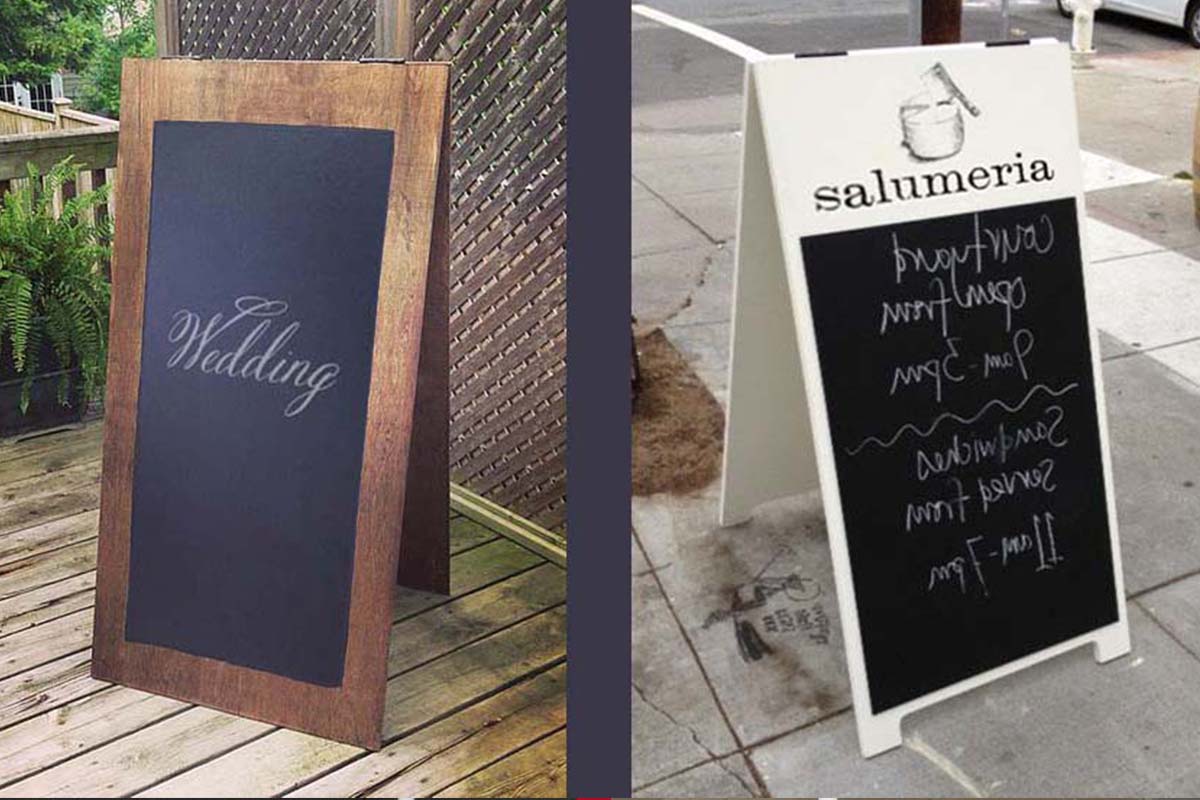 Wedding
salumeria
Courtyard
open from
9am-3pm
Sandwiches
served from
11am-7pm